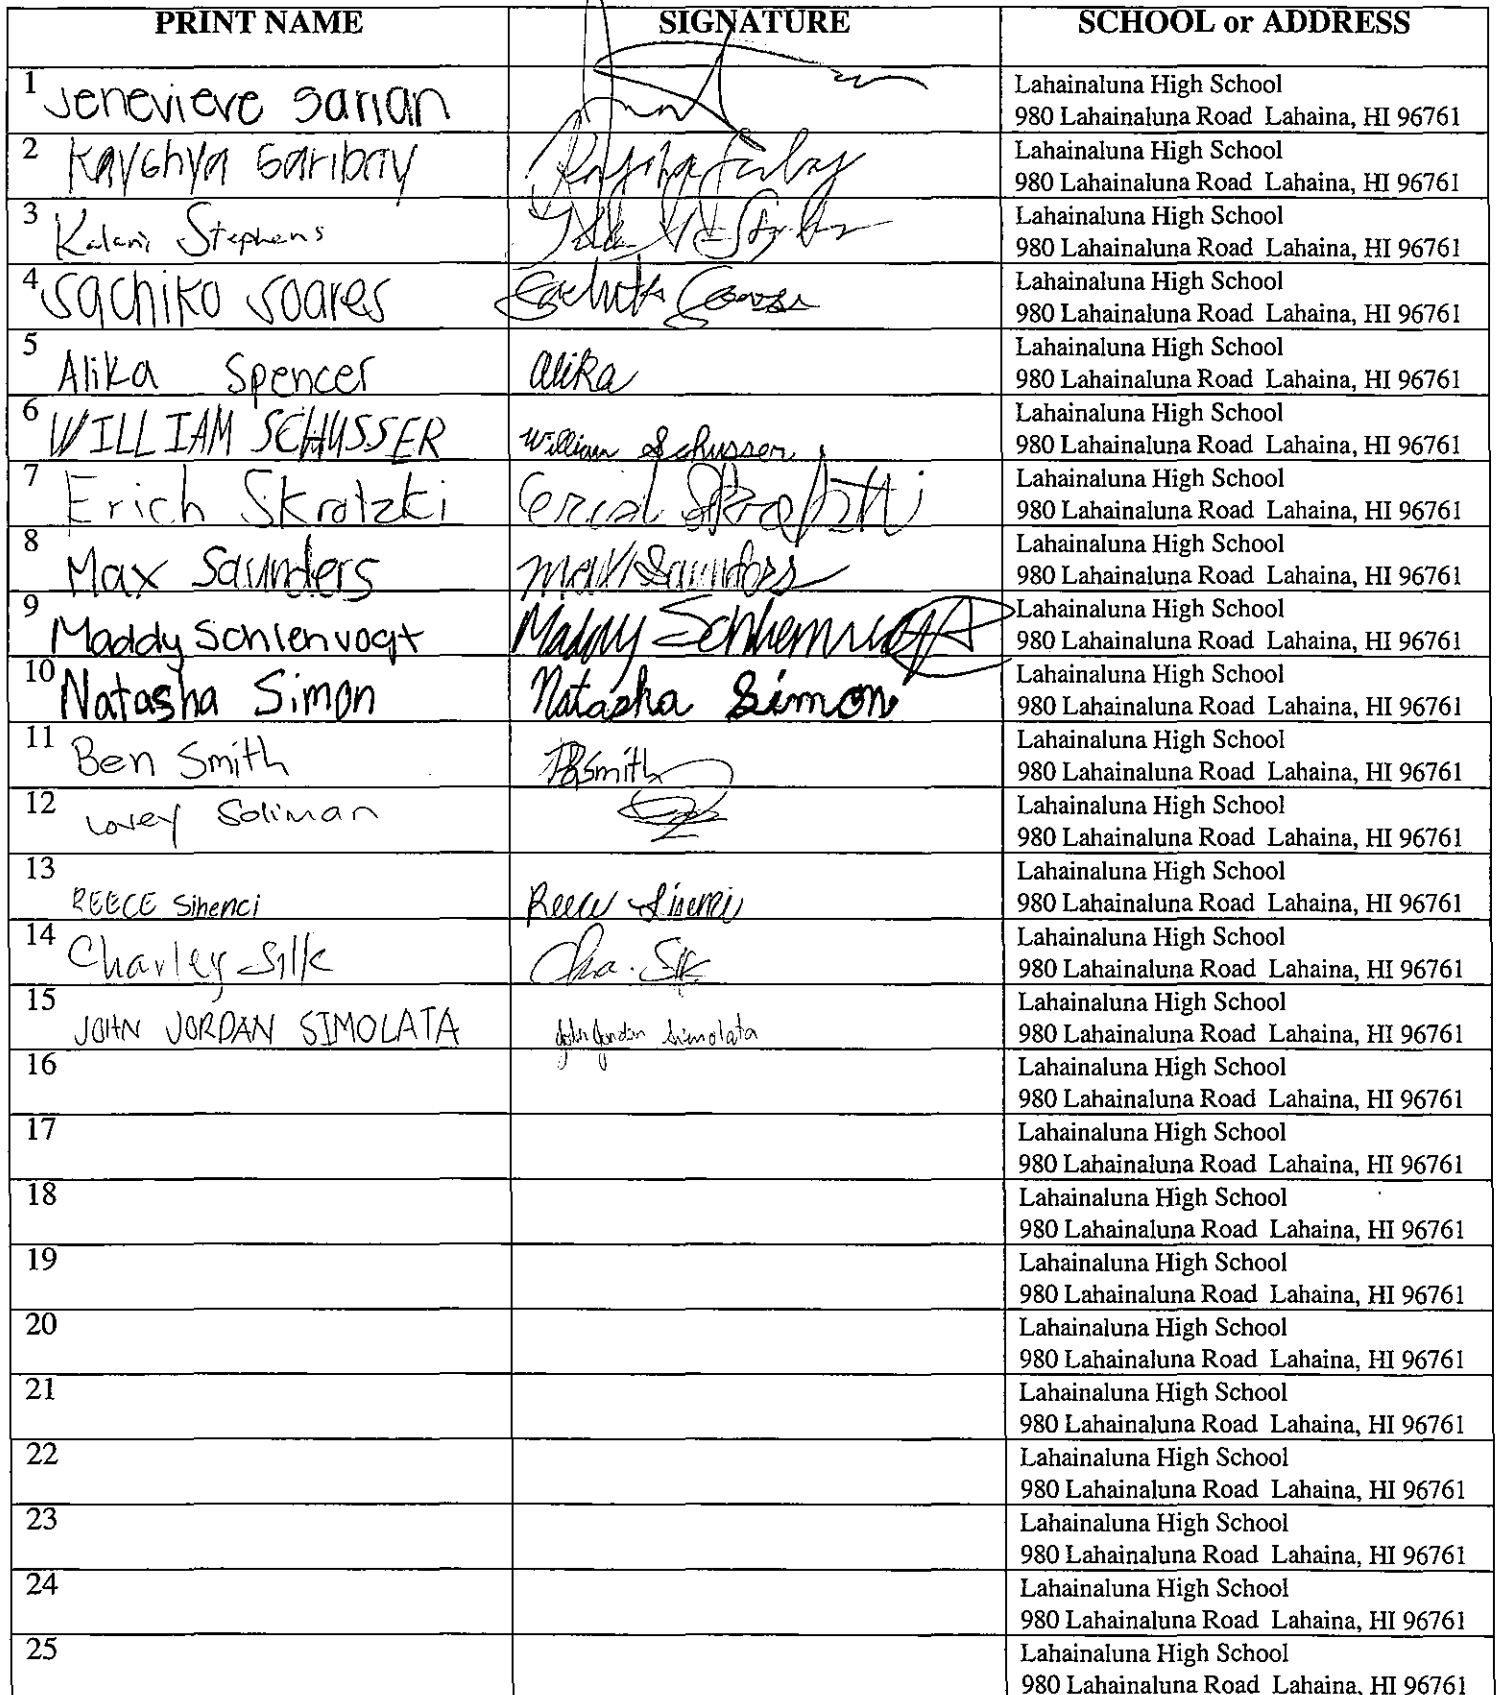 PRINT NAME SIGNATURE SCHOOL or ADDRESS
1 Jenevieve Sarian Lahainaluna High School
980 Lahainaluna Road Lahaina, HI 96761
2 Lahainaluna High School
980 Lahainaluna Road Lahaina, HI 96761
3 Kalani Stephens Lahainaluna High School
980 Lahainaluna Road Lahaina, HI 96761
4 Sachiko Soares Lahainaluna High School
980 Lahainaluna Road Lahaina, HI 96761
5 Alika Spencer Alika Lahainaluna High School
980 Lahainaluna Road Lahaina, HI 96761
6 WILLIAM SCHUSSER William Schusser Lahainaluna High School
980 Lahainaluna Road Lahaina, HI 96761
7 Erich Skrotzki Lahainaluna High School
980 Lahainaluna Road Lahaina, HI 96761
8 Max Saunders Max Saunders Lahainaluna High School
980 Lahainaluna Road Lahaina, HI 96761
9 Maddy Schlenvogt Maddy Lahainaluna High School
980 Lahainaluna Road Lahaina, HI 96761
10 Natasha Simon Natasha Simon Lahainaluna High School
980 Lahainaluna Road Lahaina, HI 96761
11 Ben Smith BSmith Lahainaluna High School
980 Lahainaluna Road Lahaina, HI 96761
12 Lovey Soliman Lahainaluna High School
980 Lahainaluna Road Lahaina, HI 96761
13 REECE Sinenci Reece Sinenci Lahainaluna High School
980 Lahainaluna Road Lahaina, HI 96761
14 Charley Silk Cha. Silk Lahainaluna High School
980 Lahainaluna Road Lahaina, HI 96761
15 JOHN JORDAN SIMOLATA John Jordan Simolata Lahainaluna High School
980 Lahainaluna Road Lahaina, HI 96761
16 Lahainaluna High School
980 Lahainaluna Road Lahaina, HI 96761
17 Lahainaluna High School
980 Lahainaluna Road Lahaina, HI 96761
18 Lahainaluna High School
980 Lahainaluna Road Lahaina, HI 96761
19 Lahainaluna High School
980 Lahainaluna Road Lahaina, HI 96761
20 Lahainaluna High School
980 Lahainaluna Road Lahaina, HI 96761
21 Lahainaluna High School
980 Lahainaluna Road Lahaina, HI 96761
22 Lahainaluna High School
980 Lahainaluna Road Lahaina, HI 96761
23 Lahainaluna High School
980 Lahainaluna Road Lahaina, HI 96761
24 Lahainaluna High School
980 Lahainaluna Road Lahaina, HI 96761
25 Lahainaluna High School
980 Lahainaluna Road Lahaina, HI 96761